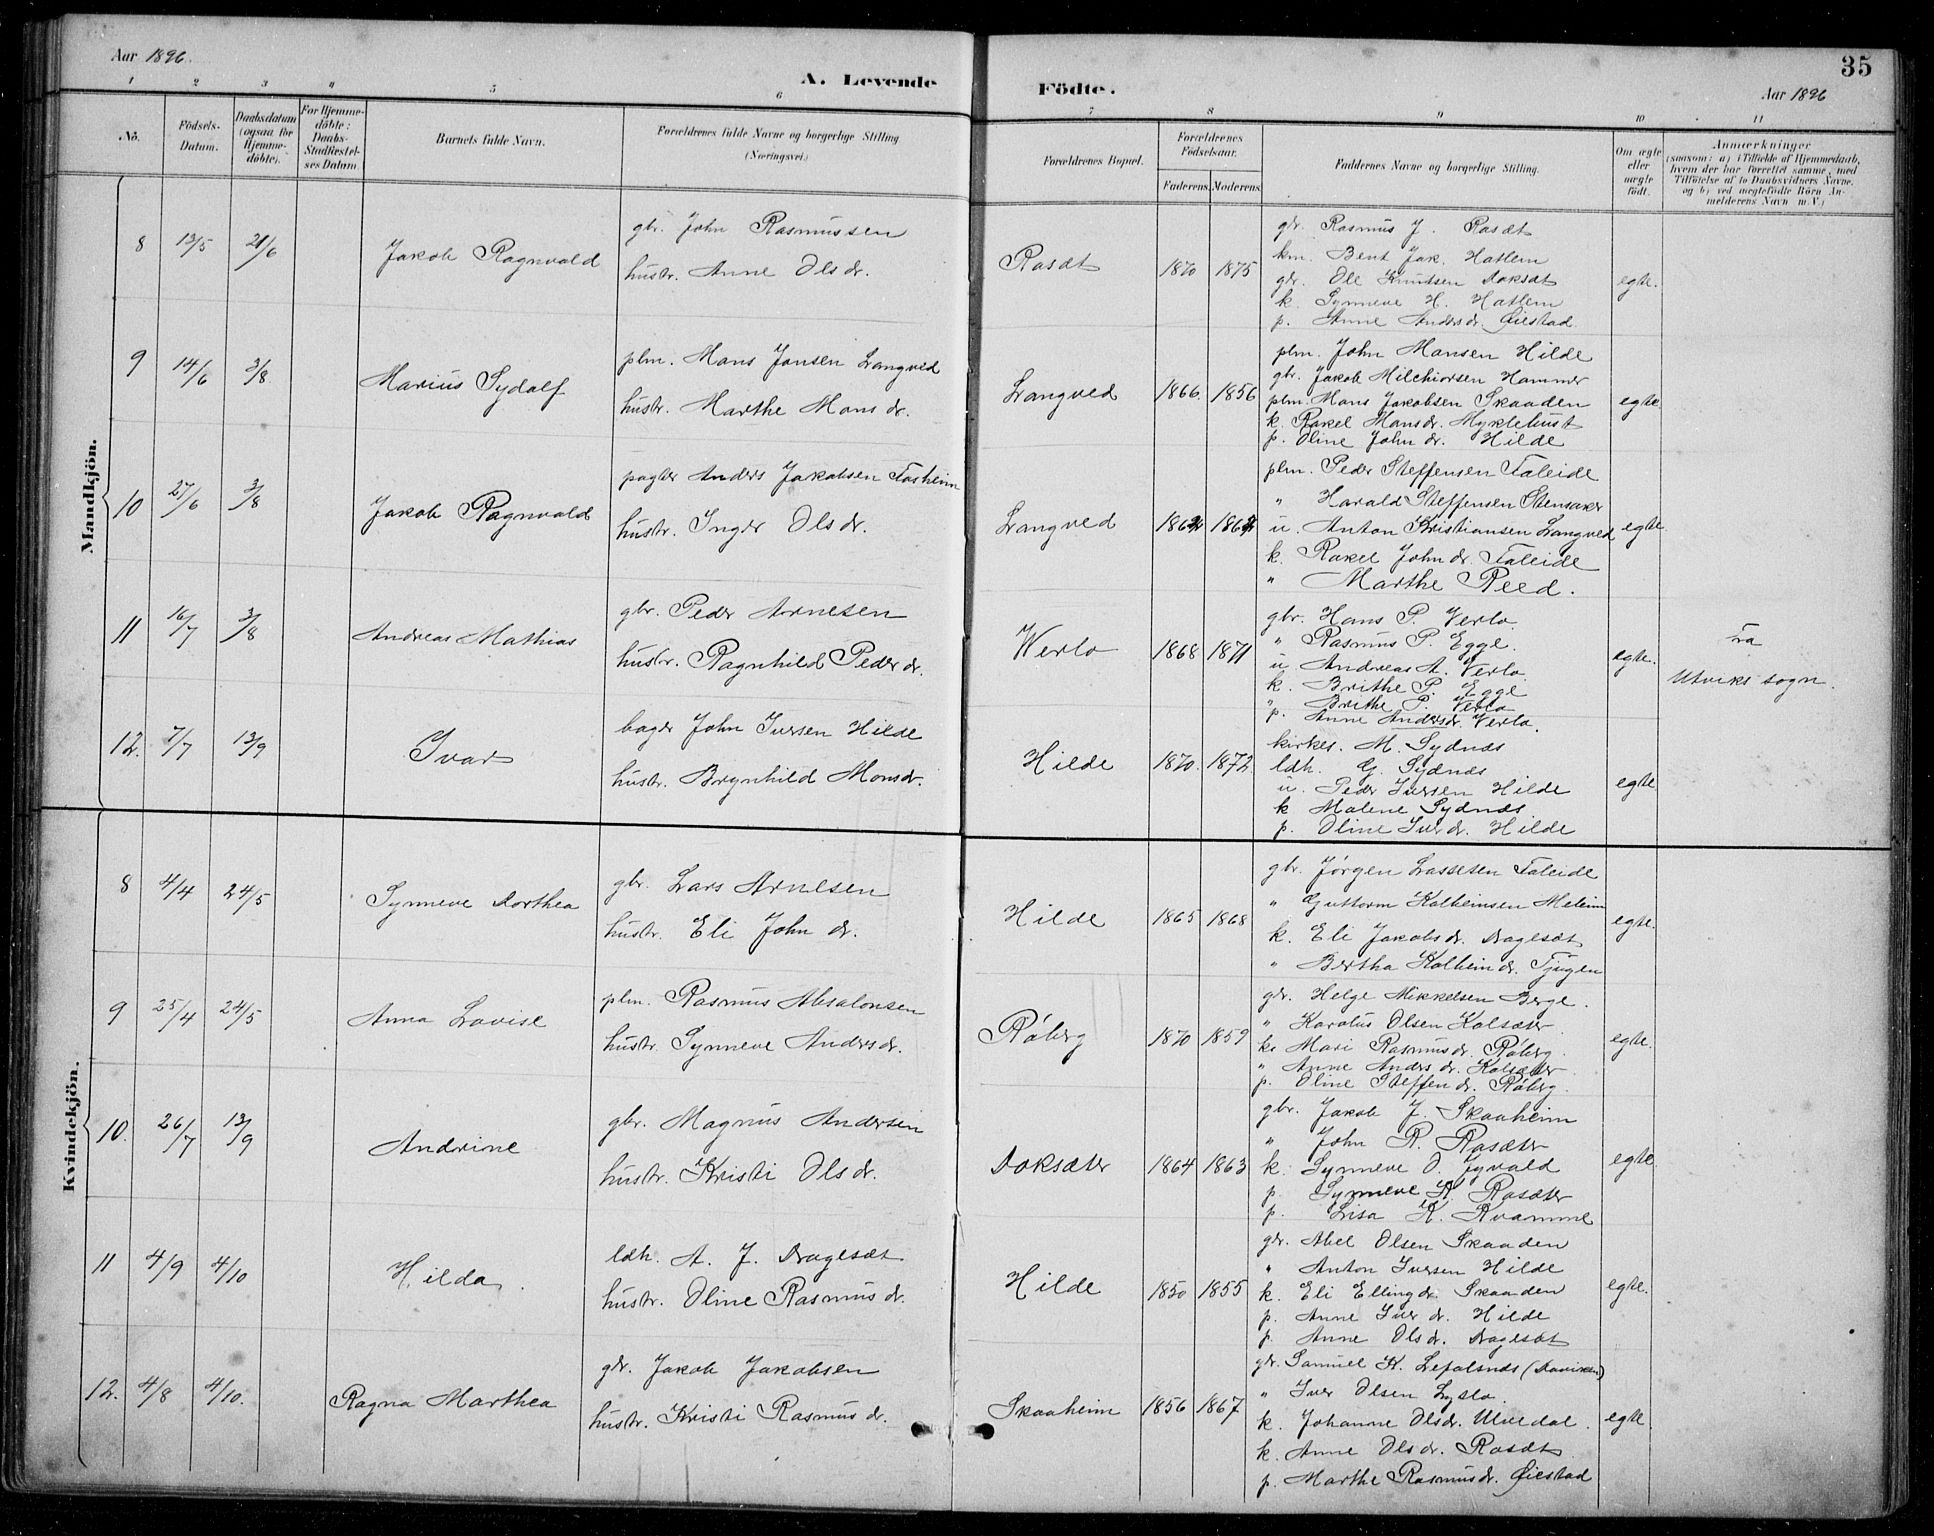 Aar 1896.
A. Levende Födte.
Aar 1896
35
1 2 3 4 5 6 7 8 9 10 11
No.
Födsels-Datum.
Daabsdatum (ogsaa for Hjemme-döbte).
For Hjemme-döbte: Daabs-Stadfæstel-ses Datum.
Barnets fulde Navn.
Forældrenes fulde Navne og borgerlige Stilling (Næringsvei.)
Forældrenes Bopæl.
Forældrenes Födselsaar.
Faderens. Moderens.
Faddernes Navne og borgerlige Stilling.
Om ægte eller uægte født.
Anmærkninger
(saasom: a) i Tilfælde af Hjemmedaab, hvem der har forrettet samme, med Tilföielse af to Daabsvidners Navne, og b) ved uægtefödte Börn An-melderens Navn m.V.)
Mandkjön.
8 13/5 21/6 Jakob Ragnvald
gbr. John Rasmussen
hustr. Anne Olsdr.
Rasæt 1870 1875
gbr. Rasmus J. Rasæt
km. Bent Jak. Hatlem
gbr. Ole Knutsen Doksæt
k. Synneve H. Hatlem
p. Anne Andersdr. Øiestad
egte.
9 14/6 3/8 Marius Sydolf
plm. Mons Jonsen Langved
hustr. Marthe Monsdr.
Langved 1866. 1856
plm. John Monsen Hilde
gbr. Jakob Milchiorsen Hammer
plm. Mons Jakobsen Skaaden
k. Rakel Monsdr. Myklebust
p. Oline Johndr. Hilde
egte
10 27/6 3/8 Jakob Ragnvald
pagter Anders Jakobsen Tosheim
hustr. Inger Olsdr.
Langved
plm. Peder Steffensen Faleide
" Harald Steffensen Stensaker
u. Anton Kristiansen Langved
k. Rakel Johndr. Faleide
" Marthe Reed.
egte
11 16/7 3/8 Andreas Mathias
gbr. Peder Arnesen
hustr. Ragnhild Pedersdr.
Verlo 1868 1871
gbr. Hans P. Verlo
" Rasmus P. Egge.
u. Andreas A. Verlo
k. Brithe P. Egge
" Brithe P. Verlo
p. Anne Andersdr. Verlo.
egte.
Fra Utviks sogn.
12. 7/7 13/9 Ivar
bager John Iversen Hilde
hustr. Brynhild Monsdr.
Hilde 1870. 1872.
kirkes. M. Sydnes
ldh. G. Sydnes
u. Peder Iversen Hilde
k Malene Sydnes
p. Oline Iverdr. Hilde
egte
Kvindekjön.
8 4/4 24/5 Synneve Dorthea
gbr. Lars Arnesen
hustr. Eli Johndr.
Hilde 1865 1868
gbr. Jørgen Lassesen Faleide
" Guttorm Kolbeinsen Meleim
k. Eli Jakobsdr. Dragesæt
" Bertha Kolbeindr. Tjugen
egte.
9 25/4 24/5 Anna Lovise
plm. Rasmus Absalonsen
hustr. Synneve Andersdr.
Røberg 1870 1859
gbr. Helge Mikkelsen Berge.
" Karolus Olsen Kolsæter
k. Mari Rasmusdr. Røberg.
" Anne Andersdr. Kolsæter
p. Oline Steffendr. Røberg.
egte.
10. 26/7 13/9 Andrine
gbr. Magnus Andersen
hustr. Kristi Olsdr.
Doksæter 1864 1863
gbr. Jakob J. Skaaheim
" John R. Rasæter
k. Synneve O. Jyvald
p. Synneve K. Rasæter
p. Lisa K. Kvamme
egte
11 4/9 4/10 Hilda
ldh. A. J. Dragesæt
hustr. Oline Rasmusdr.
Hilde 1850 1855
gbr. Abel Olsen Skaaden
" Anton Iversen Hilde
k. Eli Ellingdr. Skaaden
p. Anne Iverdr. Hilde
p. Anne Olsdr. Dragesæt
egte.
12. 4/8 4/10. Ragna Marthea
gbr. Jakob Jakobsen
hustr. Kristi Rasmusdr.
Skaaheim 1856 1867
gbr. Samuel K. Lefalsnes (Daviken)
" Iver Olsen Lyslo
k. Johanne Olsdr. Ulvedal.
k. Anne Olsdr. Rasæt
p. Marthe Rasmusdr. Øiestad
egte